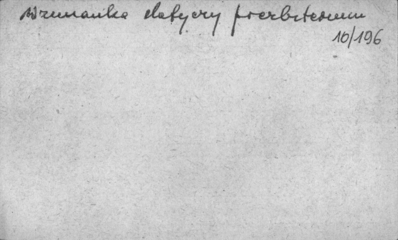 Wzmianka dotyczy prezbiterium
10/196